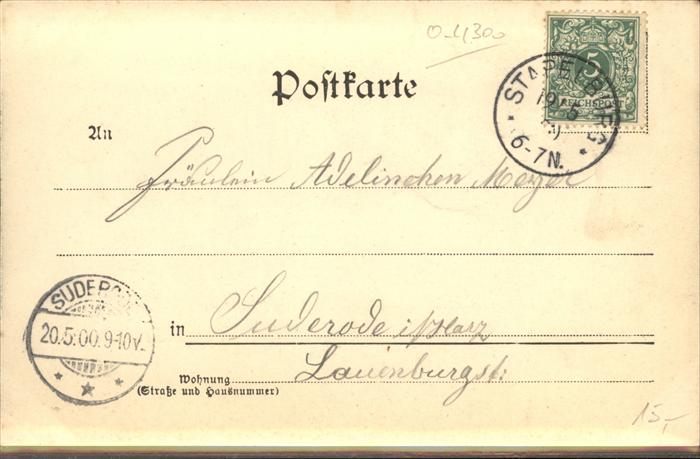 0-4,300
5
REICHSPOST
STAPELBURG
19/5
6-7N.
Poſtkarte
An
Fräulein Adelinchen Meyer
SUDERODE
20.5.00.9-10V.
in Suderode i/Harz
Lauenburgst.
Wohnung
(Straße und Hausnummer)
15,-